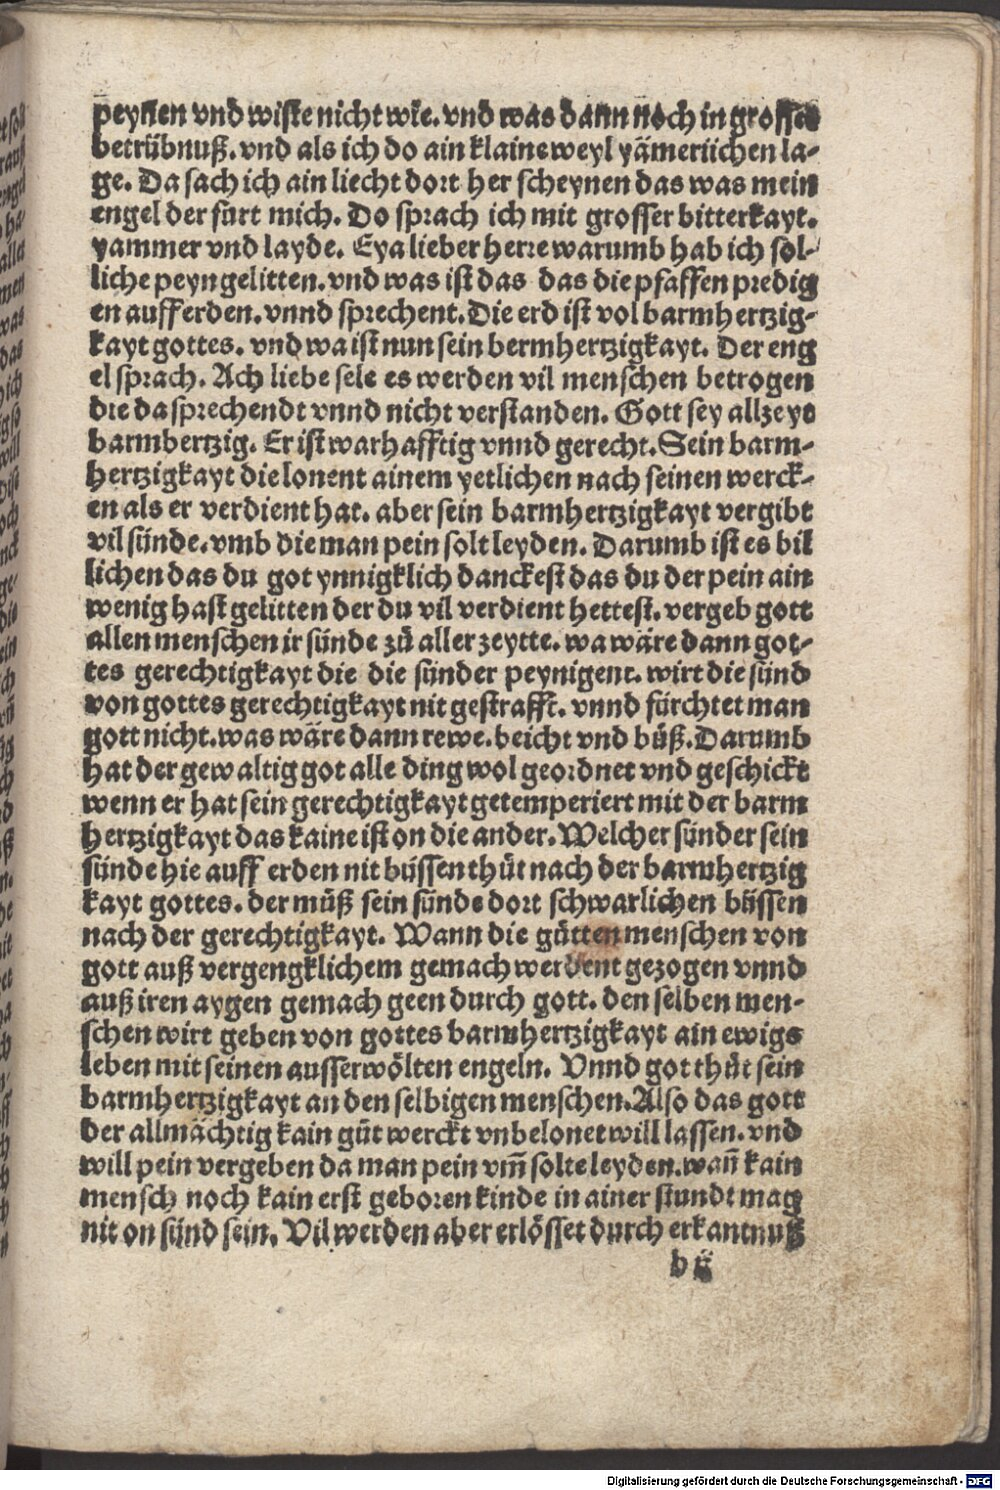 peynen vnd wiste nicht wie. vnd was dann noch in grosser
betrübnuß. vnd als ich do ain klaine weyl yämerlichen la-
ge. Da sach ich ain liecht dort her scheynen das was mein
engel der furt mich. Do sprach ich mit grosser bitterkayt.
yammer vnd layde. Eya lieber herre warumb hab ich sol-
liche peyn gelitten. vnd was ist das das die pfaffen predig
en auff erden. vnnd sprechent. Die erd ist vol barmhertzig-
kayt gottes. vnd wa ist nun sein bermhertzigkayt. Der eng
el sprach. Ach liebe sele es werden vil menschen betrogen
die da sprechendt vnnd nicht verstanden. Gott sey allzeyt
barmbertzig. Er ist warhafftig vnnd gerecht. Sein barm-
hertzigkayt die lonent ainem yetlichen nach seinen werck-
en als er verdient hat. aber sein barmhertzigkayt vergibt
vil sünde. vmb die man pein solt leyden. Darumb ist es bil
lichen das du got ynnigklich danckest das du der pein ain
wenig hast gelitten der du vil verdient hettest. vergeb gott
allen menschen ir sünde zů aller zeytte. wa wäre dann got-
tes gerechtigkayt die die sünder peynigent. wirt die sünd
von gottes gerechtigkayt nit gestrafft. vnnd fürchtet man
gott nicht. was wäre dann rewe. beicht vnd bůß. Darumb
hat der gewaltig got alle ding wol geordnet vnd geschickt
wenn er hat sein gerechtigkayt getemperiert mit der barm
hertzigkayt das kaine ist on die ander. Welcher sünder sein
sünde hie auff erden nit büssen thůt nach der barmhertzig
kayt gottes. der můß sein sünde dort schwarlichen büssen
nach der gerechtigkayt. Wann die gůtten menschen von
gott auß vergengklichem gemach werdent gezogen vnnd
auß iren aygen gemach geen durch gott. den selben men-
schen wirt geben von gottes barmhertzigkayt ain ewigs
leben mit seinen ausserwölten engeln. Vnnd got thůt sein
barmhertzigkayt an den selbigen menschen. Also das gott
der allmächtig kain gůt werckt vnbelonet will lassen. vnd
will pein vergeben da man pein vm̄ solte leyden. wan̄ kain
mensch noch kain erst geboren kinde in ainer stundt mag
nit on sünd sein. Vil werden aber erlösset durch erkantnuß
b ij
Digitalisierung gefördert durch die Deutsche Forschungsgemeinschaft - DFG